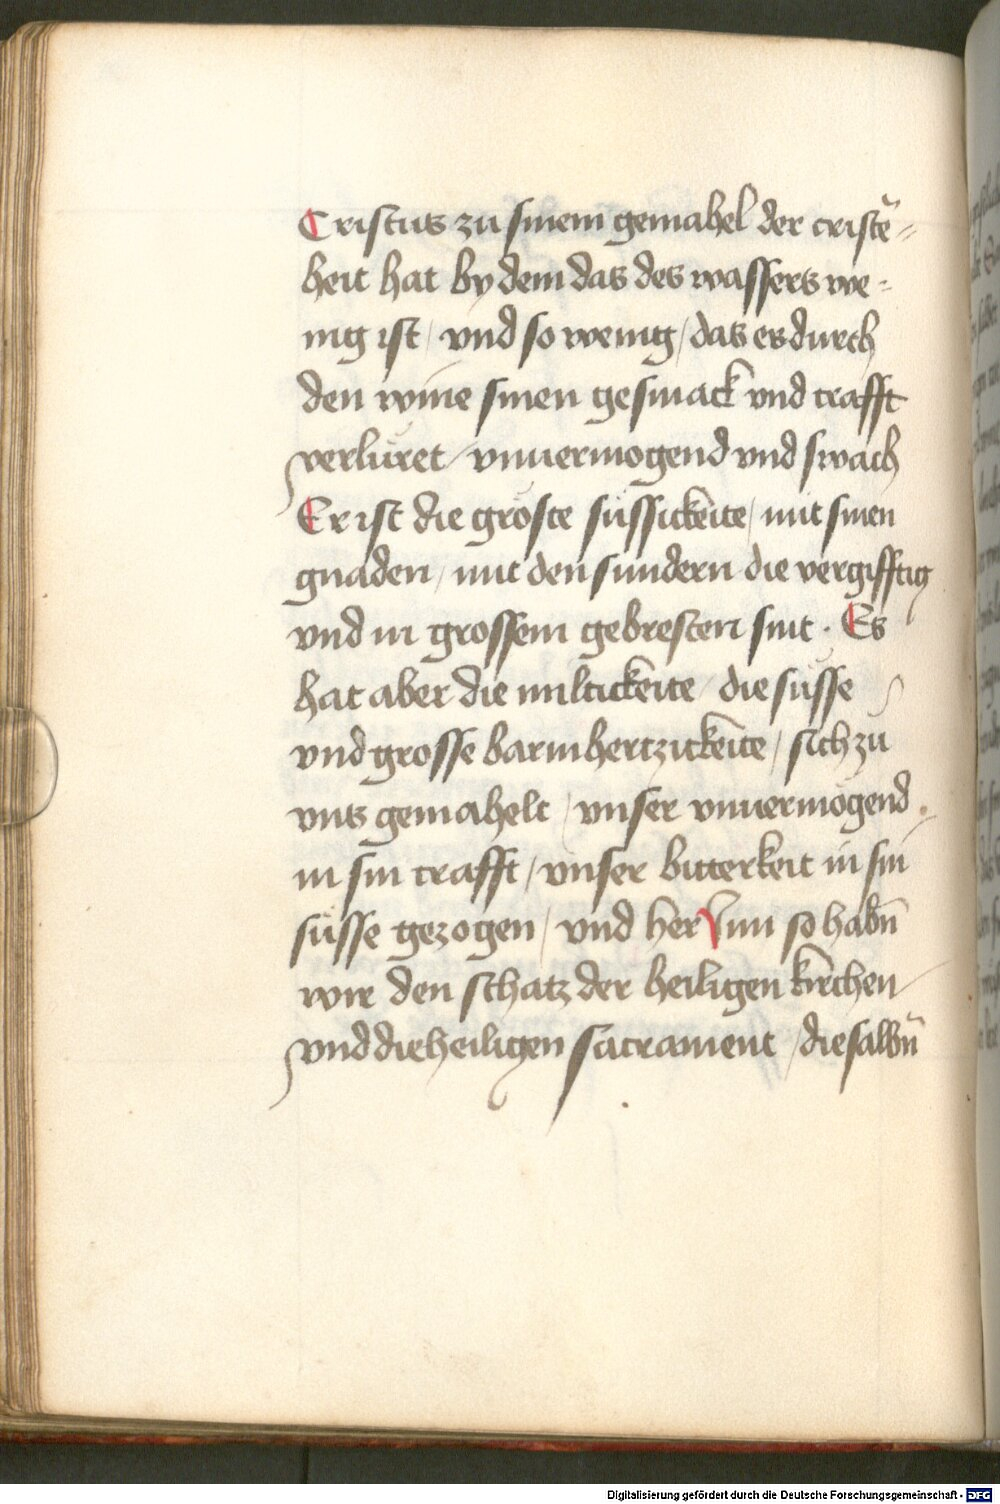 Cristus zu sinem gemahel der cristē-
heit hat by dem das des wassers we-
nig ist / vnd so wenig / das es durch
den wine sinen gesmack vnd crafft
verlúret / vnuermogend vnd swach
Er ist die gröste süssickeite / mit sinen
gnaden / mit den sundern die vergifftig
vnd in grossem gebresten sint . Es
hat aber die miltickeite / die süsse
vnd grosse barmhertzickeite / sich zü
vns gemahelt / vnser vnuermögend
in sin crafft / vnser bitterkeit in sin
süsse gezogen / vnd her Vnn so habn̄
wir den schatz der heiligen kirchen
vnd die heiligen sacrament / die salbn̄
Digitalisierung gefördert durch die Deutsche Forschungsgemeinschaft - DFG